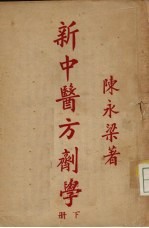 陳永梁著
新中醫方劑學
下册